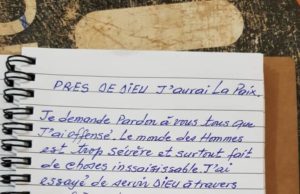 PRES DE DIEU J'aurai La Paix.
Je demande Pardon à vous tous que
J'ai offensé. Le monde des Hommes
est trop sévère et surtout fait
de choses insaisissable J'ai
essayé de servir DIEU à travers